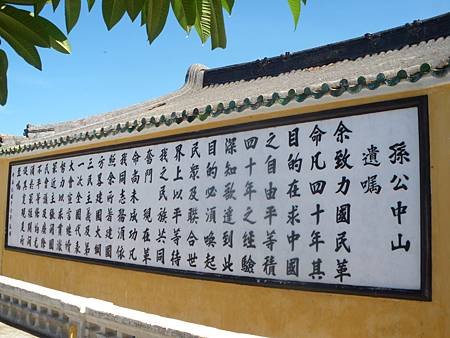 孫公中山
遺囑
余致力國民革
命凡四十年其
目的在求中國
之自由平等積
四十年之經驗
深知欲達到此
目的必須喚起
民眾及聯合世
界上以平等待
我之民族共同
奮鬥 現在革
命尚未成功凡
我同志務須依
照余所著建國
方略建國大綱
三民主義及第
一次全國代表
大會宣言繼續
努力以求貫徹
最近主張開國
民會議及廢除
不平等條約尤
須於最短期間
促其實現是所
至囑